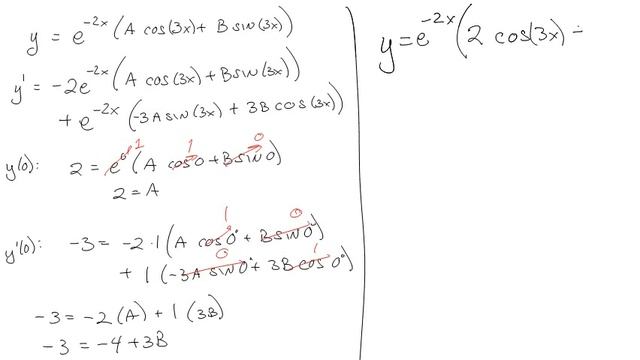 y = e^{-2x} (A cos(3x) + B sin(3x))
y' = -2e^{-2x} (A cos(3x) + B sin(3x))
+ e^{-2x} (-3A sin(3x) + 3B cos(3x))
1 1 0
y(0): 2 = e^0 (A cos0 + B sin0)
2 = A
1 0
y'(0): -3 = -2·1 (A cos0° + B sin0°)
0 1
+ 1 (-3A sin0° + 3B cos0°)
-3 = -2(A) + 1(3B)
-3 = -4 + 3B
y = e^{-2x} (2 cos(3x) -